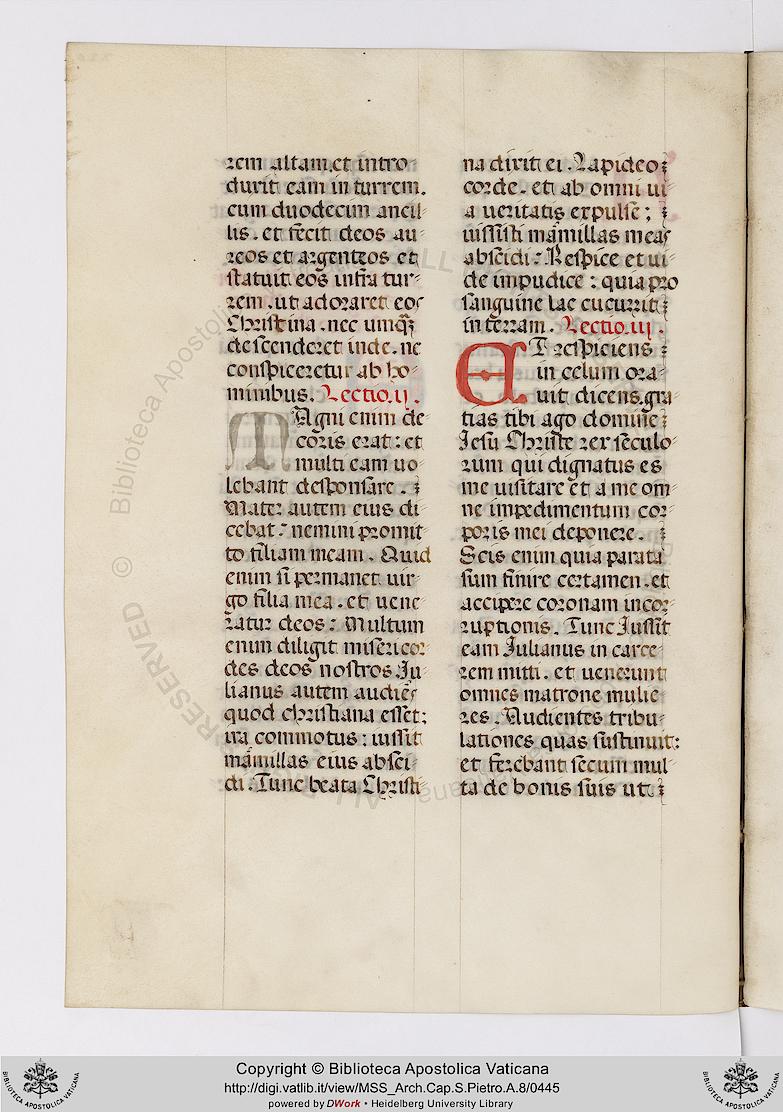 rem altam. et intro
duxit eam in turrem.
cum duodecim ancil
lis. et fecit deos au
reos et argenteos et
statuit eos infra tur
rem. ut adoraret eos
Christina. nec umqȝ
descenderet inde. ne
conspiceretur ab ho
minibus. Lectio. ii.
Magni enim de
coris erat: et
multi eam uo
lebant desponsare.
Mater autem eius di
cebat: nemini promit
to filiam meam. Quid
enim si permanet uir
go filia mea. et uene
ratur deos: Multum
enim diligit misericor
des deos nostros Ju
lianus autem audiēs
quod christiana esset:
ira commotus: iussit
māmillas eius absci
di. Tunc beata Christi
na dixit ei. Lapideo
corde. et ab omni ui
a ueritatis expulse;
iussisti māmillas meas
abscidi: Respice et ui
de impudice: quia pro
sanguine lac cucurrit
in terram. Lectio. iii.
ET respiciens
in celum ora
uit dicens. gra
tias tibi ago domine
Jesu Christe rex seculo
rum qui dignatus es
me uisitare et a me om
ne impedimentum cor
poris mei deponere.
Scis enim quia parata
sum finire certamen. et
accipere coronam incor
ruptionis. Tunc Jussit
eam Julianus in carce
rem mitti. et uenerunt
omnes matrone mulie
res. Audientes tribu
lationes quas sustinuit:
et ferebant secum mul
ta de bonis suis ut
Copyright © Biblioteca Apostolica Vaticana
http://digi.vatlib.it/view/MSS_Arch.Cap.S.Pietro.A.8/0445
powered by DWork • Heidelberg University Library
BIBLIOTECA APOSTOLICA VATICANA
BIBLIOTECA APOSTOLICA VATICANA